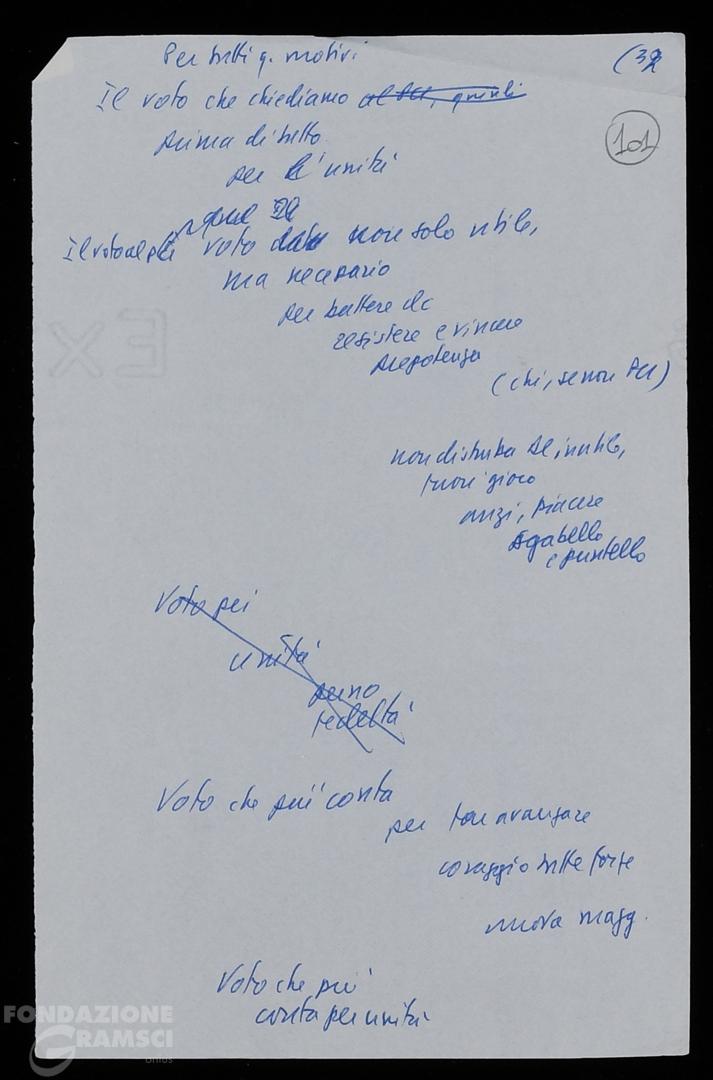 Per tutti q. motivi
(32
101
Il voto che chiediamo al PCI, quindi
prima di tutto
per l'unità
quel Il
Il voto al pci voto non solo utile,
ma necessario
per battere dc
resistere e vincere
prepotenza
(chi, se non PCI)
non disturba DC, inutile,
fuori gioco
anzi, piacere
sgabello
e puntello
Voto pci
unità
pieno
fedeltà
Voto che più conta
per fare avanzare
coraggio tutte forze
nuova magg.
Voto che più
conta per unità
EX
FONDAZIONE
GRAMSCI
onlus